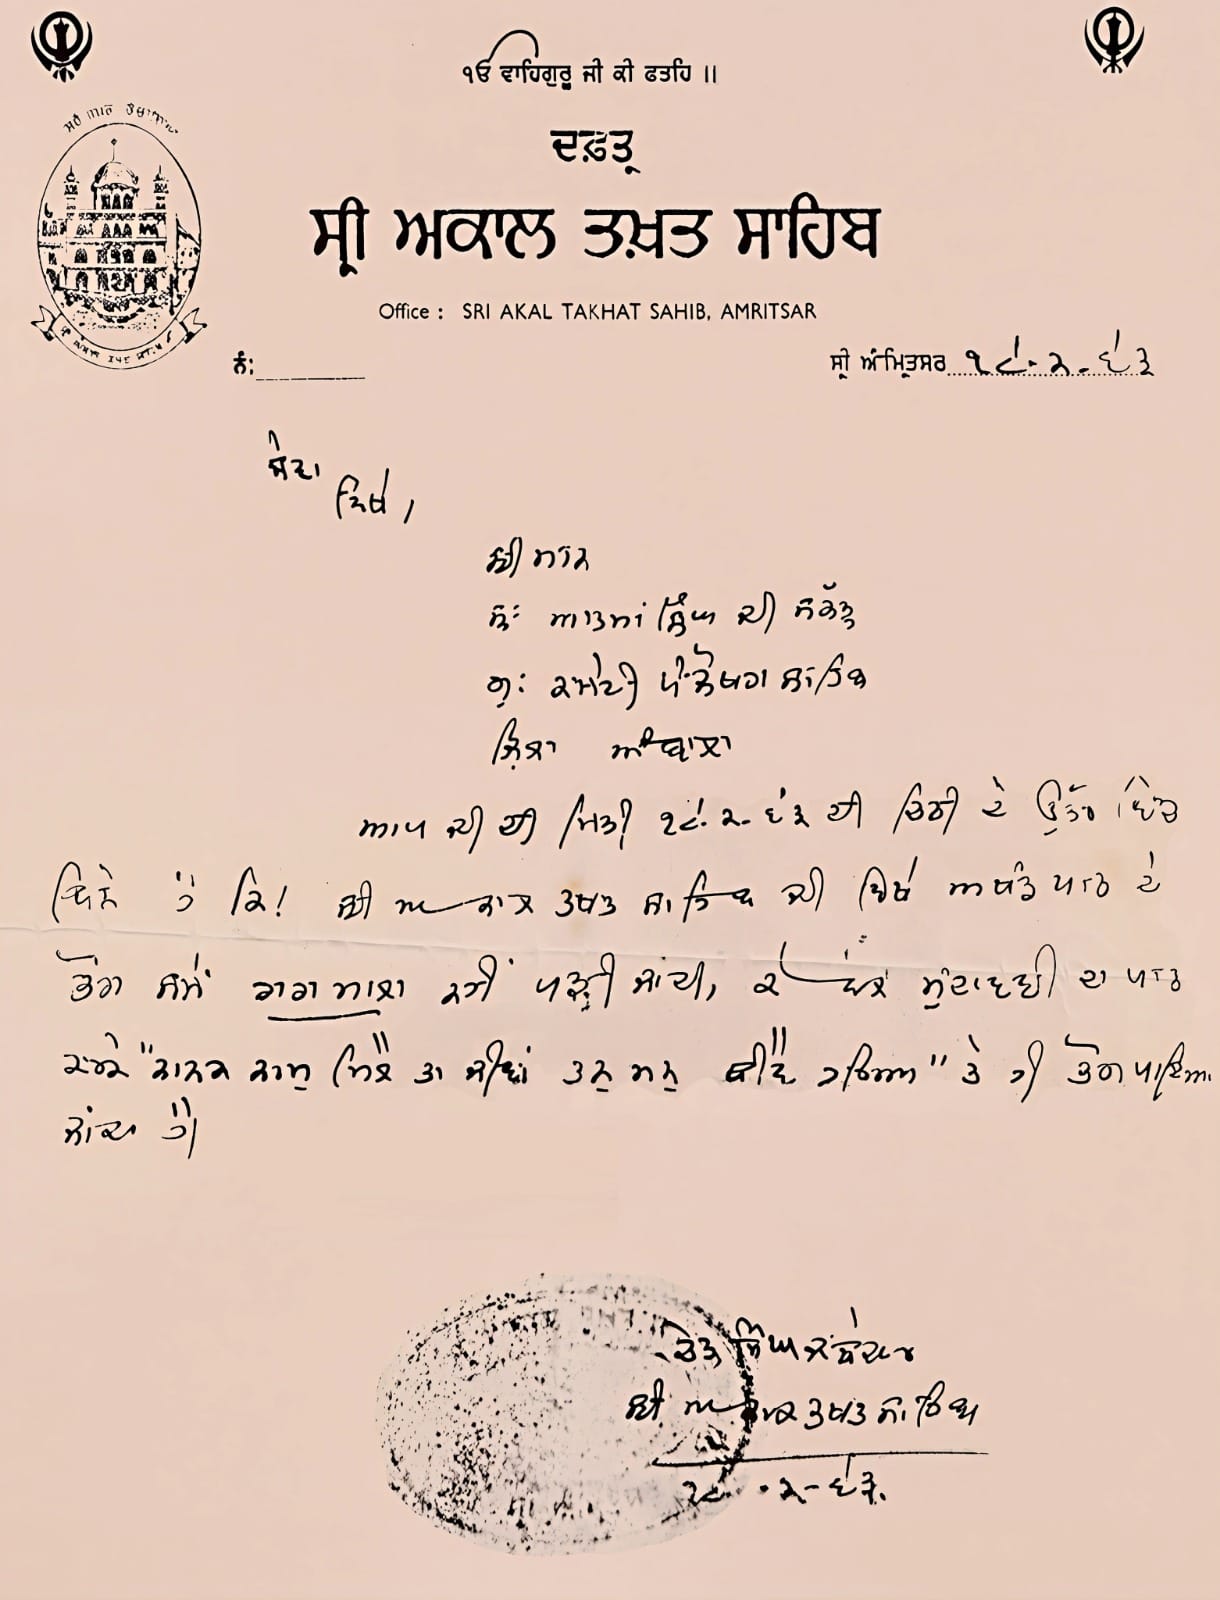 ੧ਓ ਵਾਹਿਗੁਰੂ ਜੀ ਕੀ ਫਤਹਿ ॥
ਦਫ਼ਤ੍ਰ
ਸ੍ਰੀ ਅਕਾਲ ਤਖ਼ਤ ਸਾਹਿਬ
Office : SRI AKAL TAKHAT SAHIB, AMRITSAR
ਨੰ:
ਸ੍ਰੀ ਅੰਮ੍ਰਿਤਸਰ ੨੮-੨-੬੩
ਸੇਵਾ
ਵਿਖੇ,
ਸ੍ਰੀ ਮਾਨ
ਸ: ਆਤਮਾਂ ਸਿੰਘ ਜੀ ਸਕੱਤ੍ਰ
ਗੁ: ਕਮੇਟੀ ਪੰਜੋਖਰਾ ਸਾਹਿਬ
ਜ਼ਿਲਾ ਅੰਬਾਲਾ
ਆਪ ਜੀ ਦੀ ਮਿਤੀ ੨੮-੨-੬੩ ਦੀ ਚਿਠੀ ਦੇ ਉਤੱਰ ਵਿੱਚ
ਬਿਨੈ ਹੈ ਕਿ! ਸ੍ਰੀ ਅਕਾਲ ਤਖਤ ਸਾਹਿਬ ਜੀ ਵਿਖੇ ਅਖੰਡ ਪਾਠ ਦੇ
ਭੋਗ ਸਮੇਂ ਰਾਗ ਮਾਲਾ ਨਹੀਂ ਪੜ੍ਹੀ ਜਾਂਦੀ, ਕੇਵਲ ਮੁੰਦਾਵਣੀ ਦਾ ਪਾਠ
ਕਰਕੇ "ਨਾਨਕ ਨਾਮੁ ਮਿਲੈ ਤਾਂ ਜੀਵਾਂ ਤਨੁ ਮਨੁ ਥੀਵੈ ਹਰਿਆ" ਤੇ ਹੀ ਭੋਗ ਪਾਇਆ
ਜਾਂਦਾ ਹੈ।
ਚੇਤ ਸਿੰਘ
ਸ੍ਰੀ ਅਕਾਲ ਤਖਤ ਸਾਹਿਬ
੨੮-੨-੬੩.